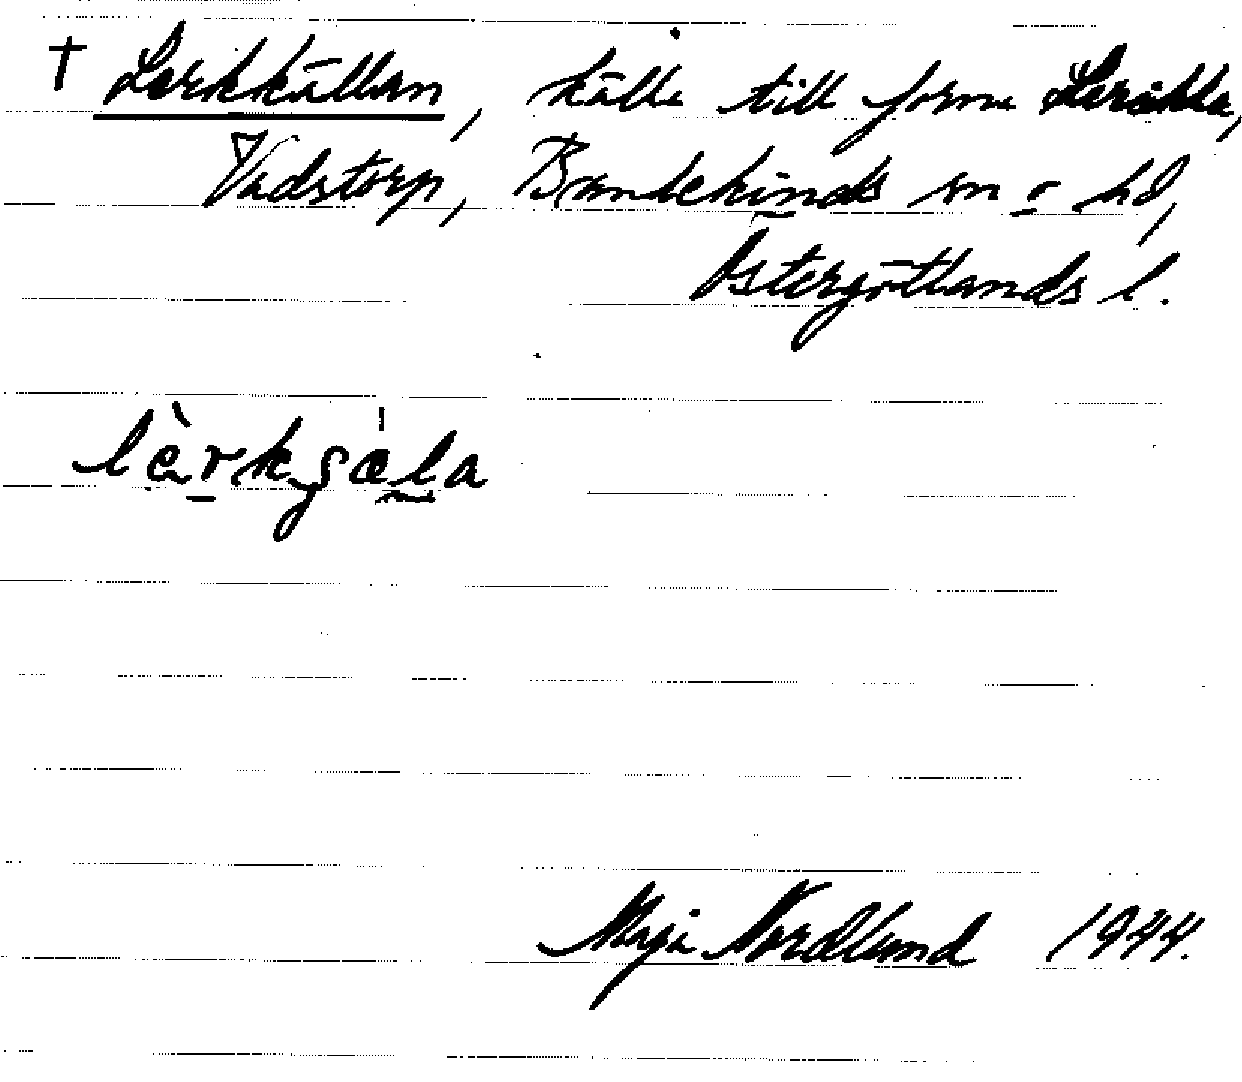 † Lerkkällan, källa till förra Lerckila,
Vadstorp, Bankekinds sn o hd,
Östergötlands l.
lèrkçæ̀la
Maja Nordlund 1944.